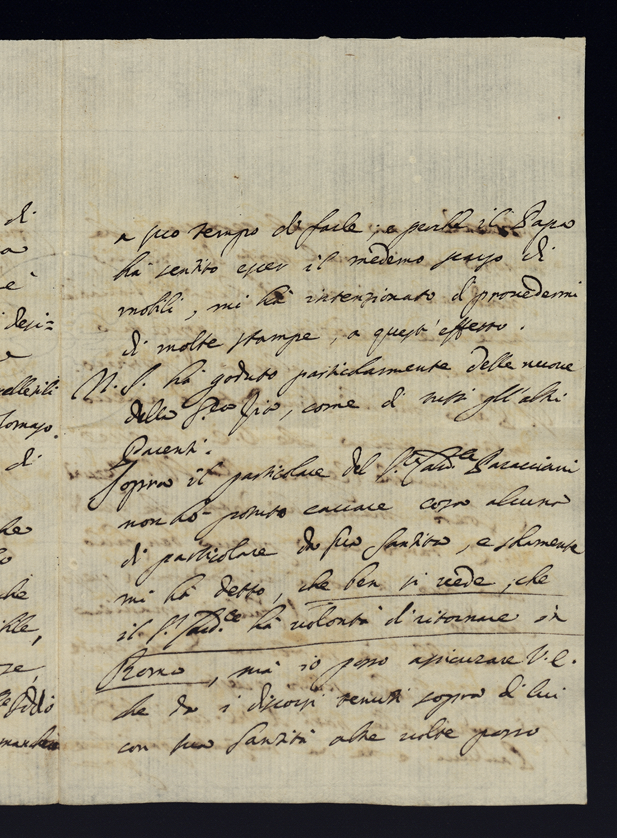 di
a
e
desi=
e
Tomaso
di
he
o
che
ille,
a suo tempo di farle, e perche il Papa
hà sentito esser il medemo scarso di
mobili, mi hà intenzionato di provedermi
di molte stampe, a quest'effetto.
N. S. hà goduto particolarmente delle nuove
della Sig.ra Zia, come di tutti gl'altri
Parenti.
Sopra il particolare del S.r Card.le Paracciani
non hò potuto cacciare cosa alcuna
di particolare da Sua Santità, e solamente
mi hà detto, che ben si vede, che
il S.r Card.le hà volontà di ritornare in
Roma, mà io posso assicurare V. E.
che da i discorsi tenuti sopra di lui
con Sua Santità altre volte posso